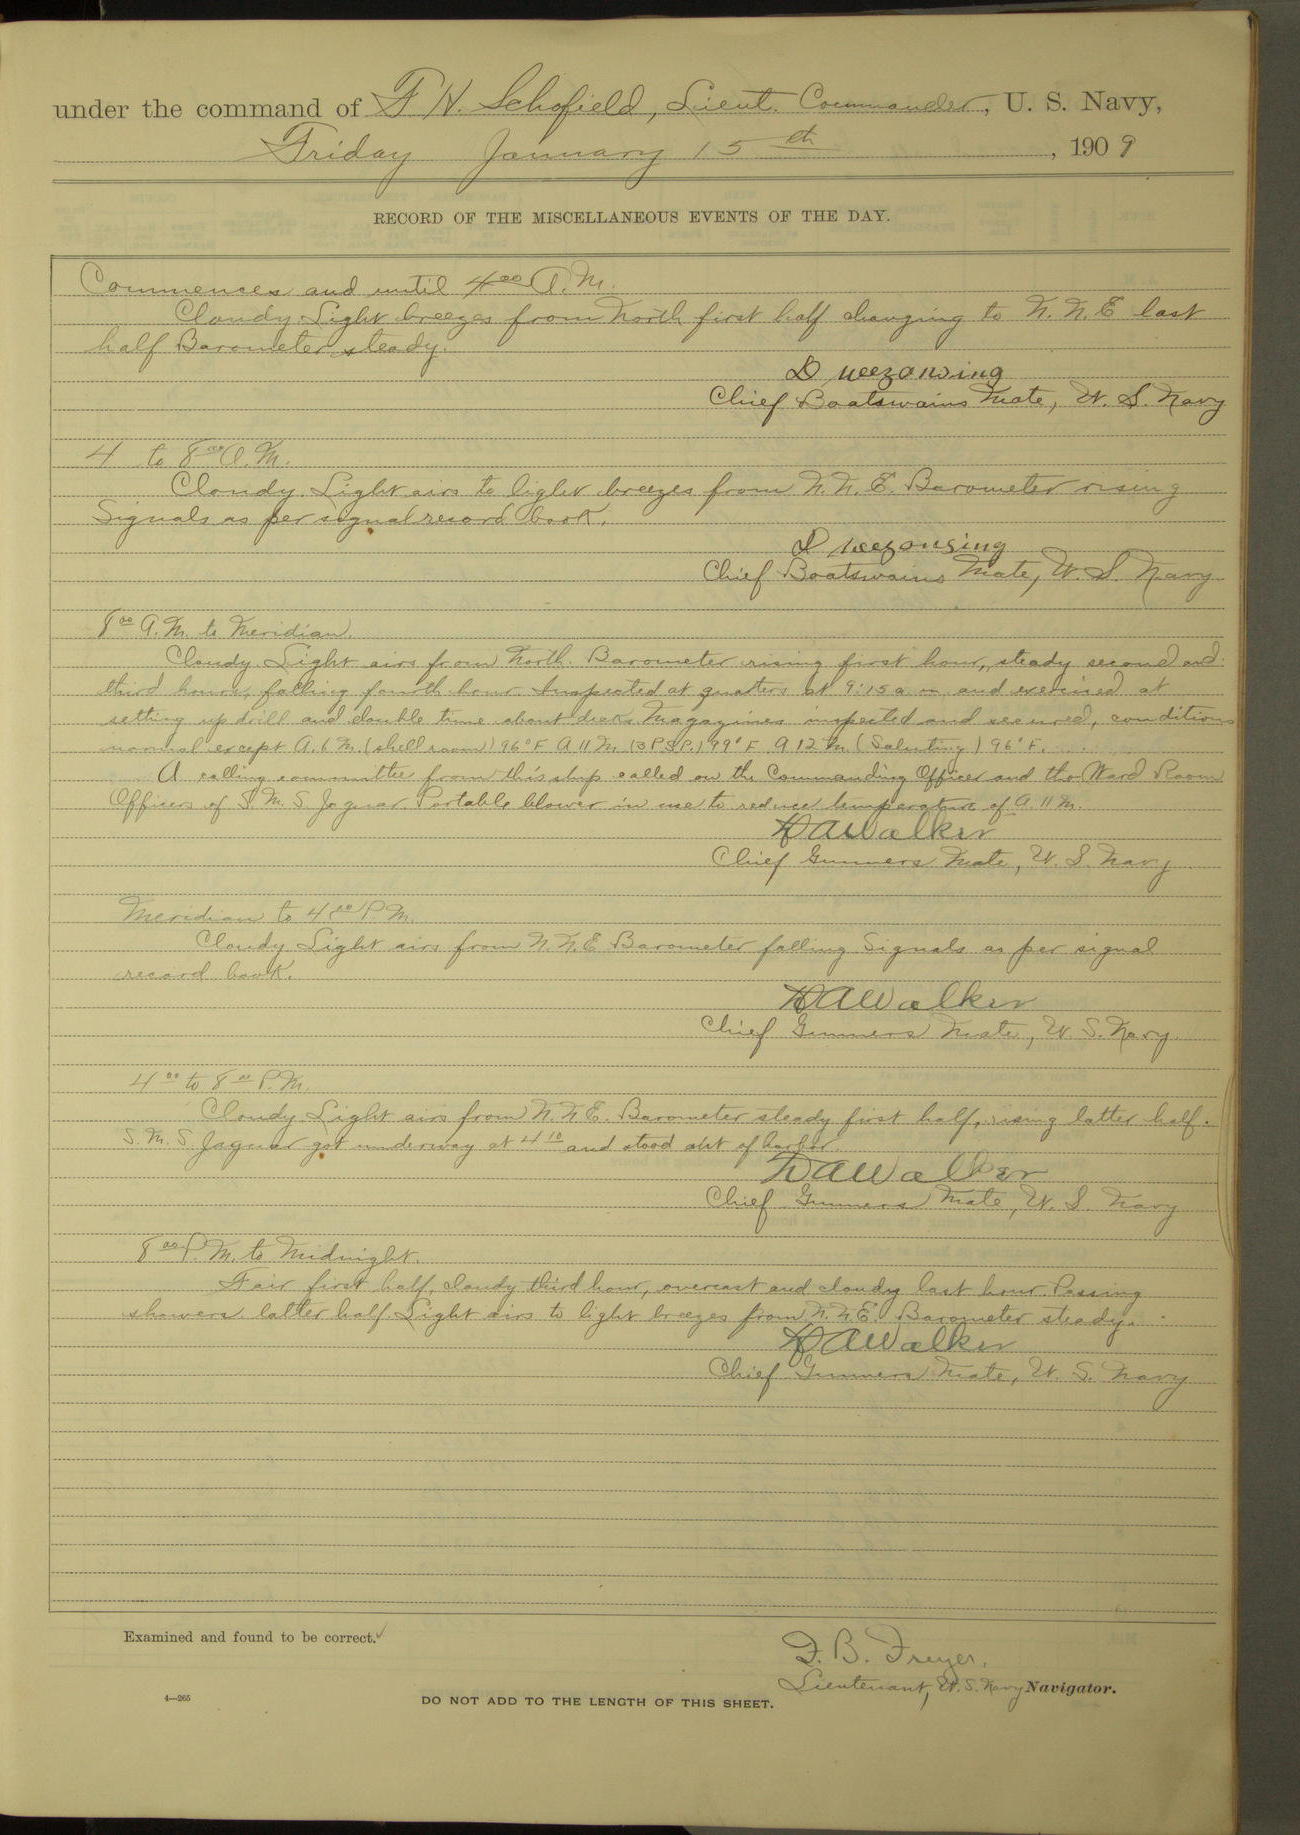 under the command of F H. Schofield, Lieut. Commander, U. S. Navy,
Friday January 15th, 1909
RECORD OF THE MISCELLANEOUS EVENTS OF THE DAY.
Commences and until 4 00 A.M.
Cloudy. Light breezes from North first half changing to N.N.E last
half Barometer steady.
D
Chief Boatswains Mate, U. S. Navy
4 to 8 00 A.M.
Cloudy. Light airs to light breezes from N.N.E. Barometer rising
Signals as per signal record book.
D
Chief Boatswains Mate, U. S. Navy
8 00 A.M. to Meridian.
Cloudy. Light airs from North. Barometer rising first hour, steady second and
third hours, falling fourth hour. Inspected at quarters at 9:15 a m and exercised at
setting up drill and double time about decks. Magazines inspected and secured, conditions
normal except A. 6 M. (shell room) 96°F. A 11 M (S.P.S.P.) 99°F. A 12 M. (Saluting) 96°F.
A calling committee from this ship called on the Commanding Officer and the Ward Room
Officers of S. M. S. Jaguar. Portable blower in use to reduce temperature of A. 11 M.
H A Walker
Chief Gunners Mate, U. S. Navy
Meridian to 4 00 P.M.
Cloudy. Light airs from N.N.E Barometer falling Signals as per signal
record book.
H A Walker
Chief Gunners Mate, U. S. Navy.
4 00 to 8 00 P.M.
Cloudy. Light airs from N.N.E. Barometer steady first half, rising latter half.
S. M. S. Jaguar got underway at 4 10 and stood out of harbor
H A Walker
Chief Gunners Mate, U. S. Navy
8 00 P.M. to Midnight.
Fair first half, cloudy third hour, overcast and cloudy last hour. Passing
showers latter half. Light airs to light breezes from N.N.E. Barometer steady.
H A Walker
Chief Gunners Mate, U. S. Navy
Examined and found to be correct.
F. B. Freyer.
Lieutenant, U.S. Navy Navigator.
4—265
DO NOT ADD TO THE LENGTH OF THIS SHEET.